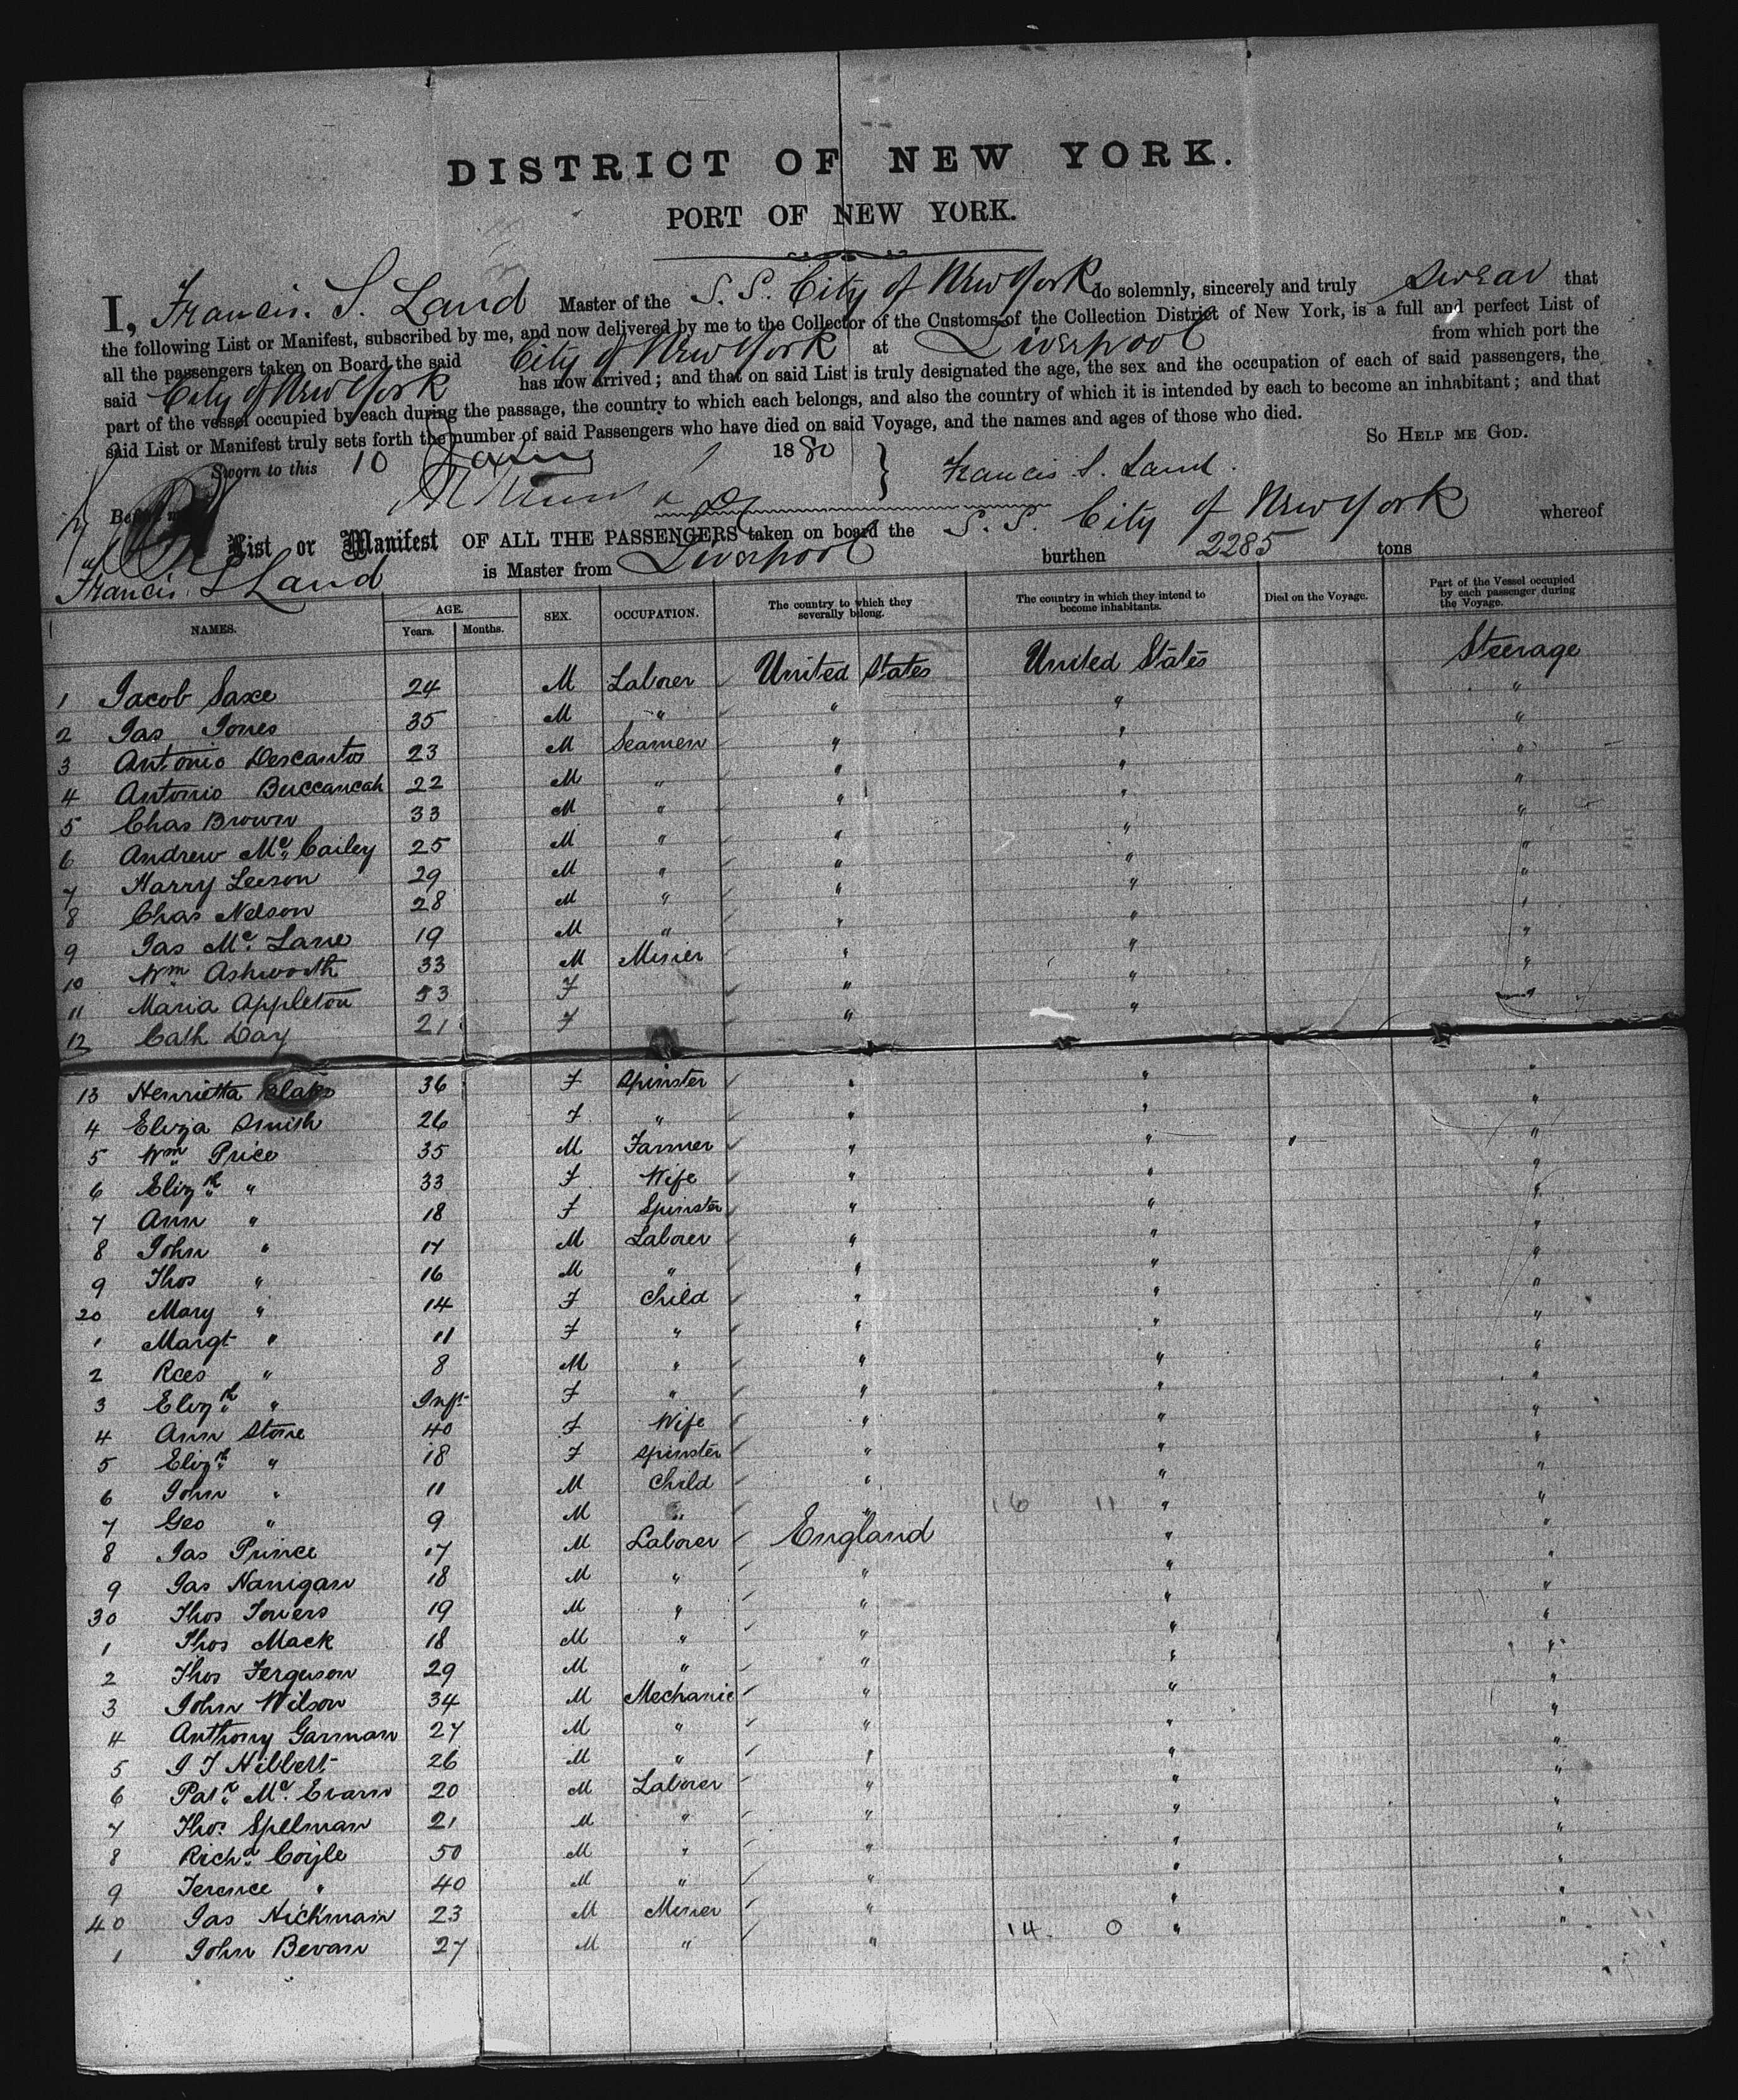 DISTRICT OF NEW YORK.
PORT OF NEW YORK.
I, Francis. S. Land Master of the S. S. City of New York do solemnly, sincerely and truly swear that
the following List or Manifest, subscribed by me, and now delivered by me to the Collector of the Customs of the Collection District of New York, is a full and perfect List of
all the passengers taken on Board the said City of New York at Liverpool from which port the
said City of New York has now arrived; and that on said List is truly designated the age, the sex and the occupation of each of said passengers, the
part of the vessel occupied by each during the passage, the country to which each belongs, and also the country of which it is intended by each to become an inhabitant; and that
said List or Manifest truly sets forth the number of said Passengers who have died on said Voyage, and the names and ages of those who died.
So HELP ME GOD.
Sworn to this 10 1880 Francis S. Land.
Before me
List or Manifest OF ALL THE PASSENGERS taken on board the S. S. City of New York whereof
Francis S Land is Master from Liverpool burthen 2285 tons
NAMES. AGE. Years. Months. SEX. OCCUPATION. The country to which they severally belong. The country in which they intend to become inhabitants. Died on the Voyage. Part of the Vessel occupied by each passenger during the Voyage.
1 Jacob Saxe 24 M Laborer United States United States Steerage
2 Jas Jones 35 M " " " "
3 Antonio Descantos 23 M Seamen " " "
4 Antonio Buccancah 22 M " " " "
5 Chas Brown 33 M " " " "
6 Andrew Mc Cailey 25 M " " " "
7 Harry Leeson 29 M " " " "
8 Chas Nelson 28 M " " " "
9 Jas Mc Lane 19 M " " " "
10 Wm Ashworth 33 M Miner " " "
11 Maria Appleton 53 F " " "
12 Cath Day 21 F " "
13 Henrietta Blake 36 F Spinster " " "
4 Eliza Smith 26 F " " " "
5 Wm Price 35 M Farmer " " "
6 Elizth " 33 F Wife " " "
7 Ann " 18 F Spinster " " "
8 John " 17 M Laborer " " "
9 Thos " 16 M " " " "
20 Mary " 14 F Child " " "
1 Margt " 11 F " " " "
2 Rees " 8 M " " " "
3 Elizth " Inft F " " " "
4 Ann Stone 40 F Wife " " "
5 Elizth " 18 F Spinster " " "
6 John " 11 M Child " " "
7 Geo " 9 M " " 16 11 " "
8 Jas Prince 17 M Laborer England " "
9 Jas Nanigan 18 M " " " "
30 Thos Towers 19 M " " " "
1 Thos Mack 18 M " " " "
2 Thos Ferguson 29 M " " " "
3 John Wilson 34 M Mechanic " " "
4 Anthony Garman 27 M " " " "
5 J T Hibbert 26 M " " " "
6 Patk Mc Evan 20 M Laborer " " "
7 Thos Spelman 21 M " " " "
8 Richd Coyle 50 M " " " "
9 Terence " 40 M " " " "
40 Jas Hickman 23 M Miner " " "
1 John Bevan 27 M " " 14 0 " "